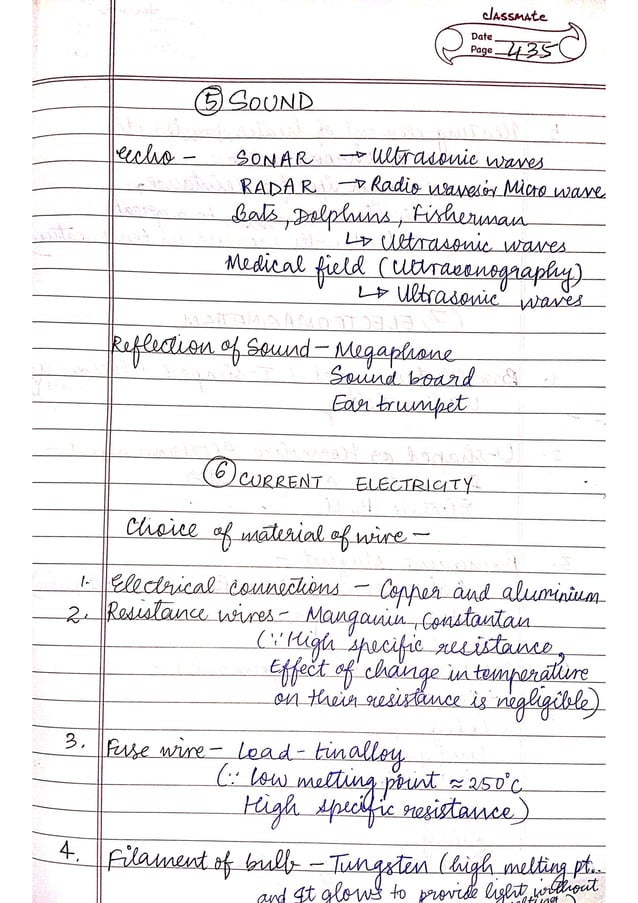 classmate
Date
Page 435
5 SOUND
echo - SONAR → Ultrasonic waves
RADAR → Radio waves or Micro wave
Bats, Dolphins, Fisherman
↳ Ultrasonic waves
Medical field (Ultrasonography)
↳ Ultrasonic waves
Reflection of Sound - Megaphone
Sound board
Ear trumpet
6 CURRENT ELECTRICITY
Choice of material of wire -
1. Electrical connections - Copper and aluminium
2. Resistance wires - Manganin, Constantan
(∵ High specific resistance,
Effect of change in temperature
on their resistance is negligible)
3. Fuse wire - Lead-tin alloy
(∵ low melting point ≈ 250°C
High specific resistance)
4. Filament of bulb - Tungsten (high melting pt..
and It glows to provide light without